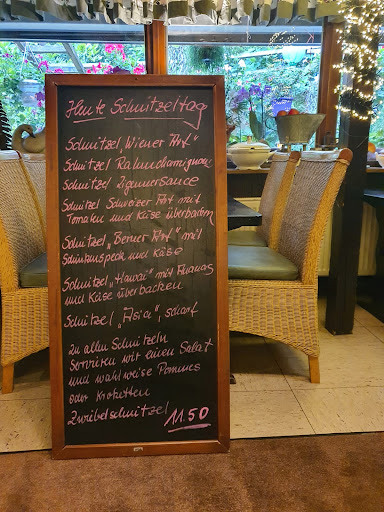 Heute Schnitzeltag
Schnitzel „Wiener Art"
Schnitzel Rahmchampignon
Schnitzel Zigeunersauce
Schnitzel Schweizer Art mit
Tomaten und Käse überbacken
Schnitzel „Berner Art" mit
Schinkenspeck und Käse
Schnitzel „Hawai" mit Ananas
und Käse überbacken
Schnitzel „Asia", scharf
Zu allen Schnitzeln
servieren wir einen Salat
und wahlweise Pommes
oder Kroketten
Zwiebelschnitzel 11.50